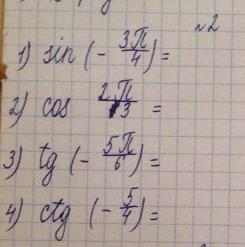 №2
1) sin (- 3π/4) =
2) cos 2π/3 =
3) tg (- 5π/6) =
4) ctg (- 5/4) =